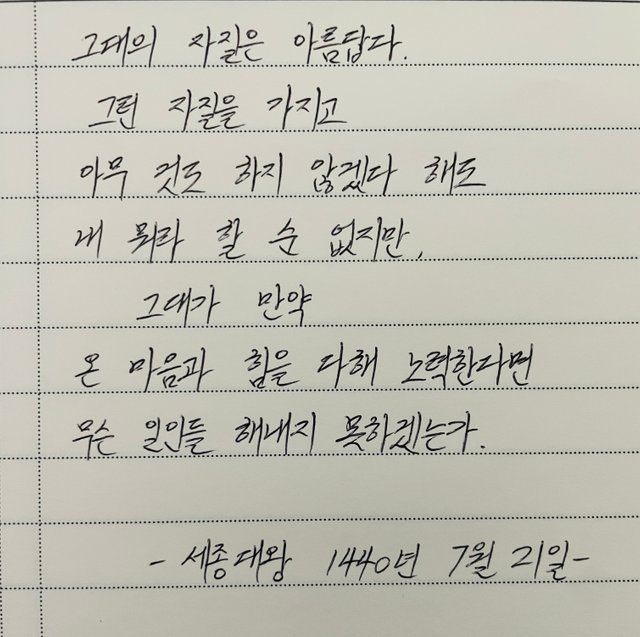 그대의 자질은 아름답다.
그런 자질을 가지고
아무 것도 하지 않겠다 해도
내 뭐라 할 순 없지만,
그대가 만약
온 마음과 힘을 다해 노력한다면
무슨 일인들 해내지 못하겠는가.
- 세종대왕 1440년 7월 21일-